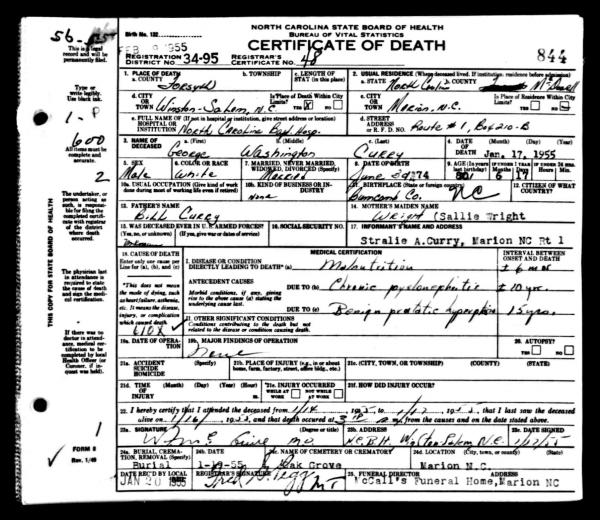 NORTH CAROLINA STATE BOARD OF HEALTH
BUREAU OF VITAL STATISTICS
CERTIFICATE OF DEATH
Birth No. 132
FEB 1955
REGISTRATION DISTRICT NO. 34-95 REGISTRAR'S CERTIFICATE NO. 48 844
1. PLACE OF DEATH
a. COUNTY Forsyth b. TOWNSHIP c. LENGTH OF STAY (in this place)
2. USUAL RESIDENCE (Where deceased lived. If institution: residence before admission)
a. STATE North Carolina b. COUNTY McDowell
d. CITY OR TOWN Winston-Salem, N.C. Is Place of Death Within City Limits? YES X NO
c. CITY OR TOWN Marion, N.C. Is Place of Residence Within City Limits? YES NO
e. FULL NAME OF HOSPITAL OR INSTITUTION (If not in hospital or institution, give street address or location) North Carolina Bapt. Hosp.
d. STREET ADDRESS OR R. F. D. NO. Route #1, Box 210-B
3. NAME OF DECEASED a. (First) b. (Middle) c. (Last)
George Washington Curry
4. DATE OF DEATH (Month) (Day) (Year) Jan. 17, 1955
5. SEX Male
6. COLOR OR RACE White
7. MARRIED, NEVER MARRIED, WIDOWED, DIVORCED (Specify) Married
8. DATE OF BIRTH June
9. AGE (In years last birthday) 80 6 17
10a. USUAL OCCUPATION (Give kind of work done during most of working life, even if retired)
10b. KIND OF BUSINESS OR INDUSTRY
None
11. BIRTHPLACE (State or foreign country) Buncomb Co. NC
12. CITIZEN OF WHAT COUNTRY?
13. FATHER'S NAME Bill Curry
14. MOTHER'S MAIDEN NAME Wright (Sallie Wright
15. WAS DECEASED EVER IN U. S. ARMED FORCES? (Yes, no, or unknown) (If yes, give war or dates of service) Unknown
16. SOCIAL SECURITY NO.
17. INFORMANT'S NAME AND ADDRESS
Stralie A.Curry, Marion NC Rt 1
18. CAUSE OF DEATH
Enter only one cause per Line for (a), (b), and (c)
MEDICAL CERTIFICATION
INTERVAL BETWEEN ONSET AND DEATH
I. DISEASE OR CONDITION DIRECTLY LEADING TO DEATH* (a) Malnutrition ± 6 mos
*This does not mean the mode of dying, such as heart failure, asthenia, etc. It means the disease, injury, or complication which caused death
ANTECEDENT CAUSES
Morbid conditions, if any, giving rise to the above cause (a) stating the underlying cause last.
DUE TO (b) Chronic pyelonephritis ± 10 yrs.
DUE TO (c) Benign prostatic 15 yrs.
610X
II. OTHER SIGNIFICANT CONDITIONS
Conditions contributing to the death but not related to the disease or condition causing death.
19a. DATE OF OPERATION 19b. MAJOR FINDINGS OF OPERATION
None
20. AUTOPSY? YES NO
21a. ACCIDENT SUICIDE HOMICIDE (Specify)
21b. PLACE OF INJURY (e.g., in or about home, farm, factory, street, office bldg., etc.)
21c. (CITY, TOWN, OR TOWNSHIP) (COUNTY) (STATE)
21d. TIME OF INJURY (Month) (Day) (Year) (Hour)
21e. INJURY OCCURRED WHILE AT WORK NOT WHILE AT WORK
21f. HOW DID INJURY OCCUR?
22. I hereby certify that I attended the deceased from 1/14 to 1/17, that I last saw the deceased alive on 1/16, and that death occurred at m., from the causes and on the date stated above.
23a. SIGNATURE (Degree or title) M.D.
23b. ADDRESS N.C.B.H. Winston Salem, N.C.
23c. DATE SIGNED 1/17/55
24a. BURIAL, CREMATION, REMOVAL (Specify) Burial
24b. DATE 1-19-55
24c. NAME OF CEMETERY OR CREMATORY Oak Grove
24d. LOCATION (City, town, or county) (State) Marion N.C.
DATE REC'D BY LOCAL REG. JAN 20 1955
REGISTRAR'S SIGNATURE
25. FUNERAL DIRECTOR ADDRESS
McCall's Funeral Home, Marion NC
This is a legal record and will be permanently filed.
Type or write legibly. Use black ink.
1-P
600
All items must be complete and accurate.
2
The undertaker, or person acting as such, is responsible for filing the completed certificate with registrar of the district where death occurred.
The physician last in attendance is required to state the cause of death and sign the medical certification.
If there was no doctor in attendance, medical certification to be completed by local Health Officer (or Coroner, if inquest was held).
THIS COPY FOR STATE BOARD OF HEALTH
1
FORM 8
Rev. 1/49